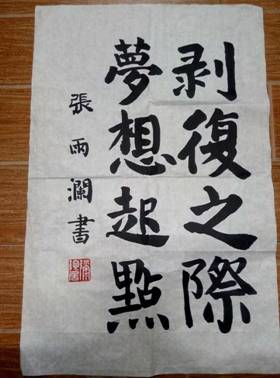 剥復之際
夢想起點
張雨瀾書